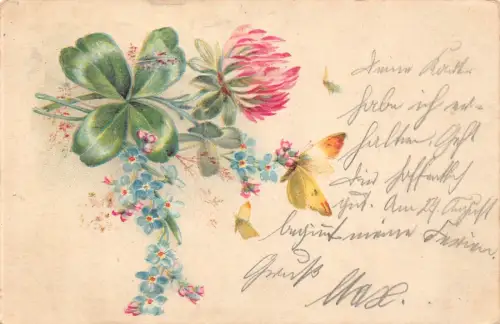 Deine Karte
habe ich er-
halten. Geht
Dir hoffentlich
gut. Am 29. August
beginnt meine Ferien.
Gruß
Max.